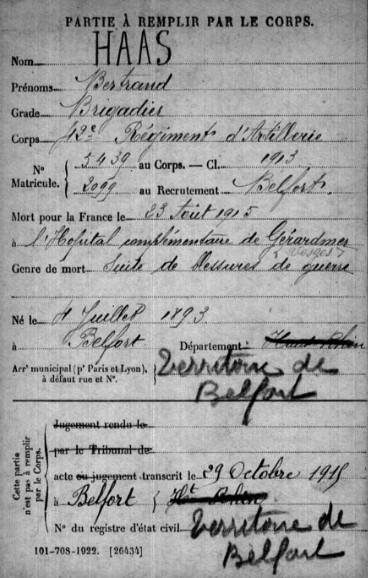 PARTIE À REMPLIR PAR LE CORPS.
Nom HAAS
Prénoms Bertrand
Grade Brigadier
Corps 42e Régiment d'Artillerie
N° Matricule. { 5439 au Corps. — Cl. 1913
2099 au Recrutement Belfort
Mort pour la France le 23 Août 1915
à l'Hopital complémentaire de Gérardmer
(Vosges)
Genre de mort Suite de blessures de guerre
Né le 4 Juillet 1893
à Belfort Département Haut-Rhin
Arr^t municipal (p^r Paris et Lyon), à défaut rue et N°. { Territoire de Belfort
Cette partie n'est pas à remplir par le Corps.
Jugement rendu le
par le Tribunal de
acte ou jugement transcrit le 29 Octobre 1915
à Belfort Ht Rhin
N° du registre d'état civil Territoire de Belfort
101-708-1922. [26434]